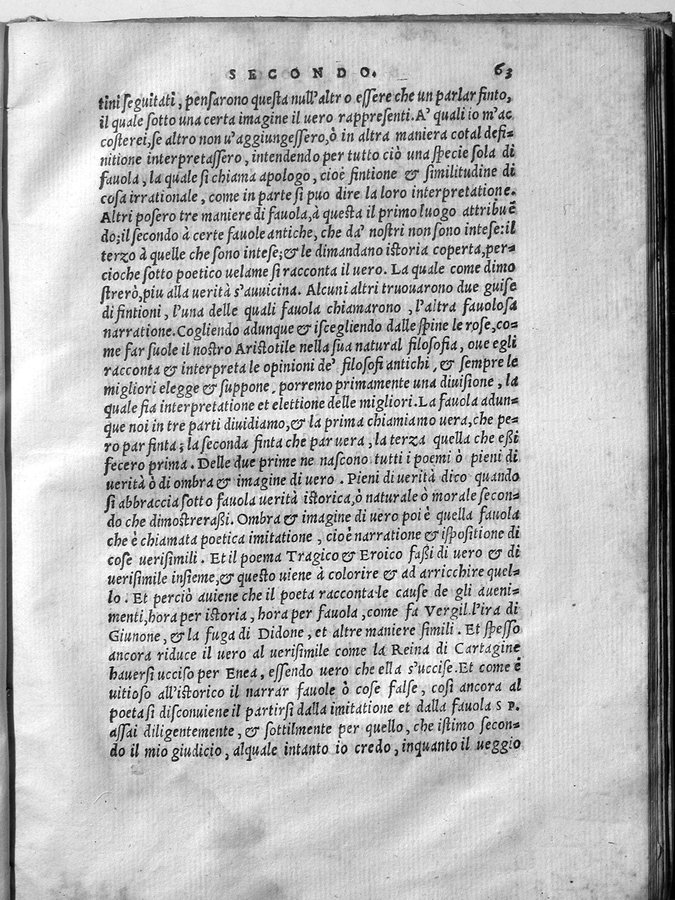 SECONDO. 63
tini seguitati, pensarono questa null'altro essere che un parlar finto,
il quale sotto una certa imagine il uero rappresenti. A' quali io m'ac
costerei, se altro non u'aggiungessero, ò in altra maniera cotal defi-
nitione interpretassero, intendendo per tutto ciò una specie sola di
fauola, la quale si chiama apologo, cioè fintione & similitudine di
cosa irrationale, come in parte si puo dire la loro interpretatione.
Altri posero tre maniere di fauola, à questa il primo luogo attribuẽ
do; il secondo à certe fauole antiche, che da' nostri non sono intese: il
terzo à quelle che sono intese; & le dimandano istoria coperta, per-
cioche sotto poetico uelame si racconta il uero. La quale come dimo
strerò, piu alla uerità s'auuicina. Alcuni altri truouarono due guise
di fintioni, l'una delle quali fauola chiamarono, l'altra fauolosa
narratione. Cogliendo adunque & iscegliendo dalle spine le rose, co-
me far suole il nostro Aristotile nella sua natural filosofia, oue egli
racconta & interpreta le opinioni de' filosofi antichi, & sempre le
migliori elegge & suppone, porremo primamente una diuisione, la
quale fia interpretatione et elettione delle migliori. La fauola adun-
que noi in tre parti diuidiamo, & la prima chiamiamo uera, che pe-
ro par finta; la seconda finta che par uera, la terza quella che eßi
fecero prima. Delle due prime ne nascono tutti i poemi ò pieni di
uerità ò di ombra & imagine di uero. Pieni di uerità dico quando
si abbraccia sotto fauola uerità istorica, ò naturale ò morale secon-
do che dimostreraßi. Ombra & imagine di uero poi è quella fauola
che è chiamata poetica imitatione, cioè narratione & ispositione di
cose uerisimili. Et il poema Tragico & Eroico faßi di uero & di
uerisimile insieme, & questo uiene à colorire & ad arricchire quel-
lo. Et perciò auiene che il poeta racconta le cause de gli aueni-
menti, hora per istoria, hora per fauola, come fa Vergil. l'ira di
Giunone, & la fuga di Didone, et altre maniere simili. Et spesso
ancora riduce il uero al uerisimile come la Reina di Cartagine
hauersi ucciso per Enea, essendo uero che ella s'uccise. Et come è
uitioso all'istorico il narrar fauole ò cose false, così ancora al
poeta si disconuiene il partirsi dalla imitatione et dalla fauola S P.
assai diligentemente, & sottilmente per quello, che istimo secon-
do il mio giudicio, al quale intanto io credo, inquanto il ueggio